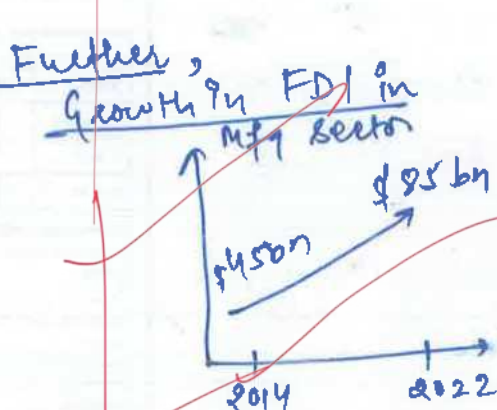 Further,
Growth in FDI in
Mfg sector
$85 bn
$45bn
2014 2022